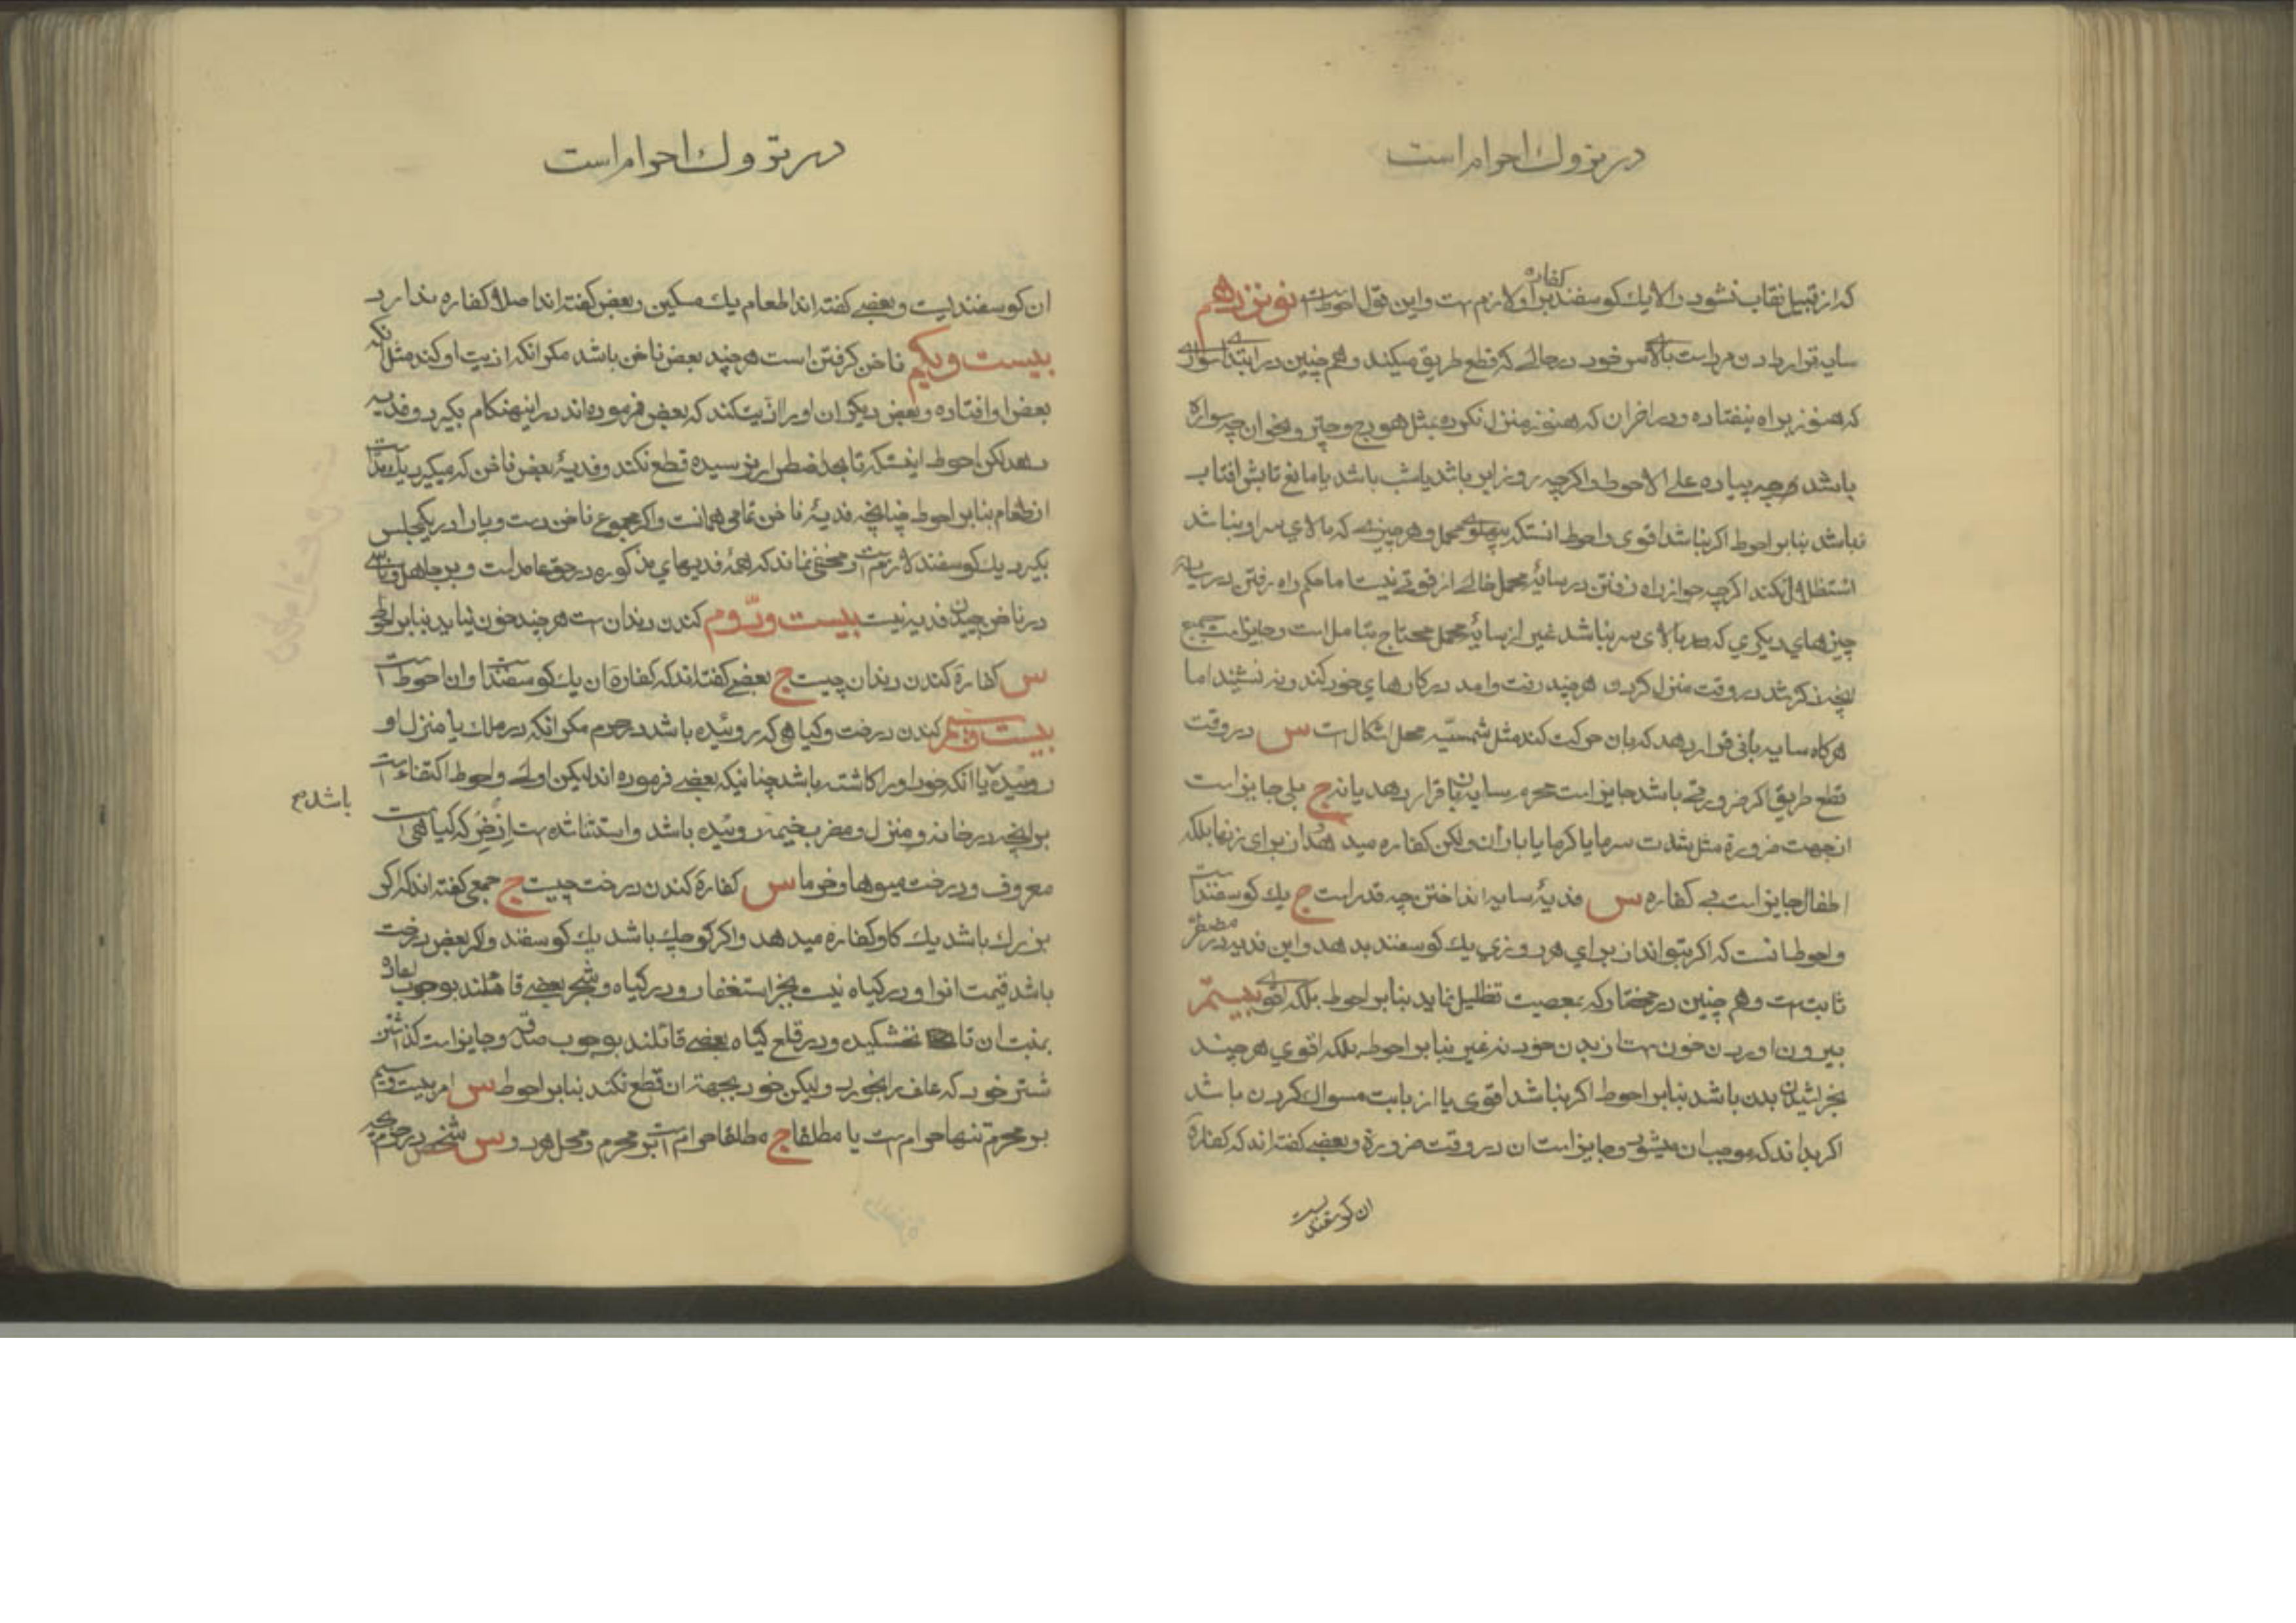 در تروك احرام است
که از قبیل نقاب نشود والا یك کوسفند کفاره بر او لازم است و این قول احوط است نوزدهم
سایه قرار دادن مرد است بالای سر خود در حالی که قطع طریق میکند و هم چنین در ابتداء سواری
که هنوز براه نیفتاده و در اخر ان که هنوز منزل نکرده مثل هودج و چتر و نحو ان چه سواره
باشد و چه پیاده علی الاحوط و اکر چه روز ابر باشد یا شب باشد یا مانع تابش افتاب
نباشد بنابر احوط اکر نباشد اقوی و احوط انستکه بپهلوی محمل و هر چیزی که بالای سر او نباشد
استظلال نکند اکر چه جواز راه رفتن در سایهٔ محمل خالی از قوتی نیست اما حکم راه رفتن در سایه
چیزهای دیکری که بالای سر نباشد غیر از سایهٔ محمل محتاج بتامل است و جایز است جمیع
انچه ذکر شد در وقت منزل کردن هر چند رفت و امد در کارهای خود کند و نه نشیند اما
هرکاه سایه بانی قرار دهد که بان حرکت کند مثل شمسیه محل اشکال است س در وقت
قطع طریق اکر ضرورتی باشد جایز است محرم سایه بان قرار دهد یا نه ج بلی جایز است
از جهت ضرورة مثل شدت سرما یا کرما یا باران ولکن کفاره میدهد از برای زنها بلکه
اطفال جایز است بی کفاره س فدیهٔ سایه انداختن چه قدر است ج یك کوسفند است
و احوط انست که اکر بتواند از برای هر روزی یك کوسفند بدهد و این فدیه در مضطر
ثابت است و هم چنین در مختار که بمعصیت تظلیل نماید بنابر احوط بلکه اقوی بیستم
بیرون اوردن خون است از بدن خود نه غیر بنابر احوط بلکه اقوی هر چند
بخراشیدن بدن باشد بنابر احوط اکر نباشد اقوی یا از بابت مسواك کردن باشد
اکر بداند که موجب ان میشود و جایز است ان در وقت ضرورة و بعضی کفته اند که کفارهٔ
ان کوسفندیست
در تروك احرام است
ان کوسفندیست و بعضی کفته اند اطعام یك مسکین و بعض کفته اند اصلا کفاره ندارد
بیست ویکم ناخن کرفتن است هر چند بعض ناخن باشد مکر انکه اذیت او کند مثل انکه
بعض او افتاده و بعض دیکر ان او را اذیت کند که بعض فرموده اند در اینهنکام بکیرد و فدیه
بدهد لکن احوط اینستکه تا بحد اضطرار نرسیده قطع نکند و فدیهٔ بعض ناخن که میکیرد یك مد است
از طعام بنابر احوط چنانچه فدیهٔ ناخن تمامی همانست و اکر مجموع ناخن دست و پا را در یکمجلس
بکیرد یك کوسفند لازم است و مخفی نماند که همهٔ فدیهای مذکوره در حق عامد است و بر جاهل و ناسی
در ناخن چیدن فدیه نیست بیست ودّوم کندن دندان است هر چند خون نیاید بنابر احوط
س کفارهٔ کندن دندان چیست ج بعضی کفته اند که کفارهٔ ان یك کوسفند است و ان احوط است
بیست وسیم کندن درخت و کیاهی که روئیده باشد در حرم مکر انکه در ملك یا منزل او
روئیده یا انکه خود او را کاشته باشد چنانیکه بعضی فرموده اند لیکن اولی و احوط اکتفاء است
بر انچه در خانه و منزل و مضرب خیمه روئیده باشد و استثنا شده است اذخر که کیاهی است
باشد م
معروف و درخت میوها و خرما س کفارهٔ کندن درخت چیست ج جمعی کفته اند که اکر
بزرك باشد یك کاو کفاره میدهد و اکر کوچك باشد یك کوسفند و اکر بعض درخت
باشد قیمت انرا و در کیاه نیست بجز استغفار و در کیاه و شجر بعضی قائلند بوجوب اعاده
بمنبت ان تا نخشکیده و در قلع کیاه بعضی قائلند بوجوب صدقه و جایز است کذاشتن
شتر خود که علف را بخورد ولیکن خود بجهة ان قطع نکند بنابر احوط س امر بیست وسیم
بر محرم تنها حرام است یا مطلقا ج مطلقا حرام است بر محرم و محل هر دو س شخص در حرم